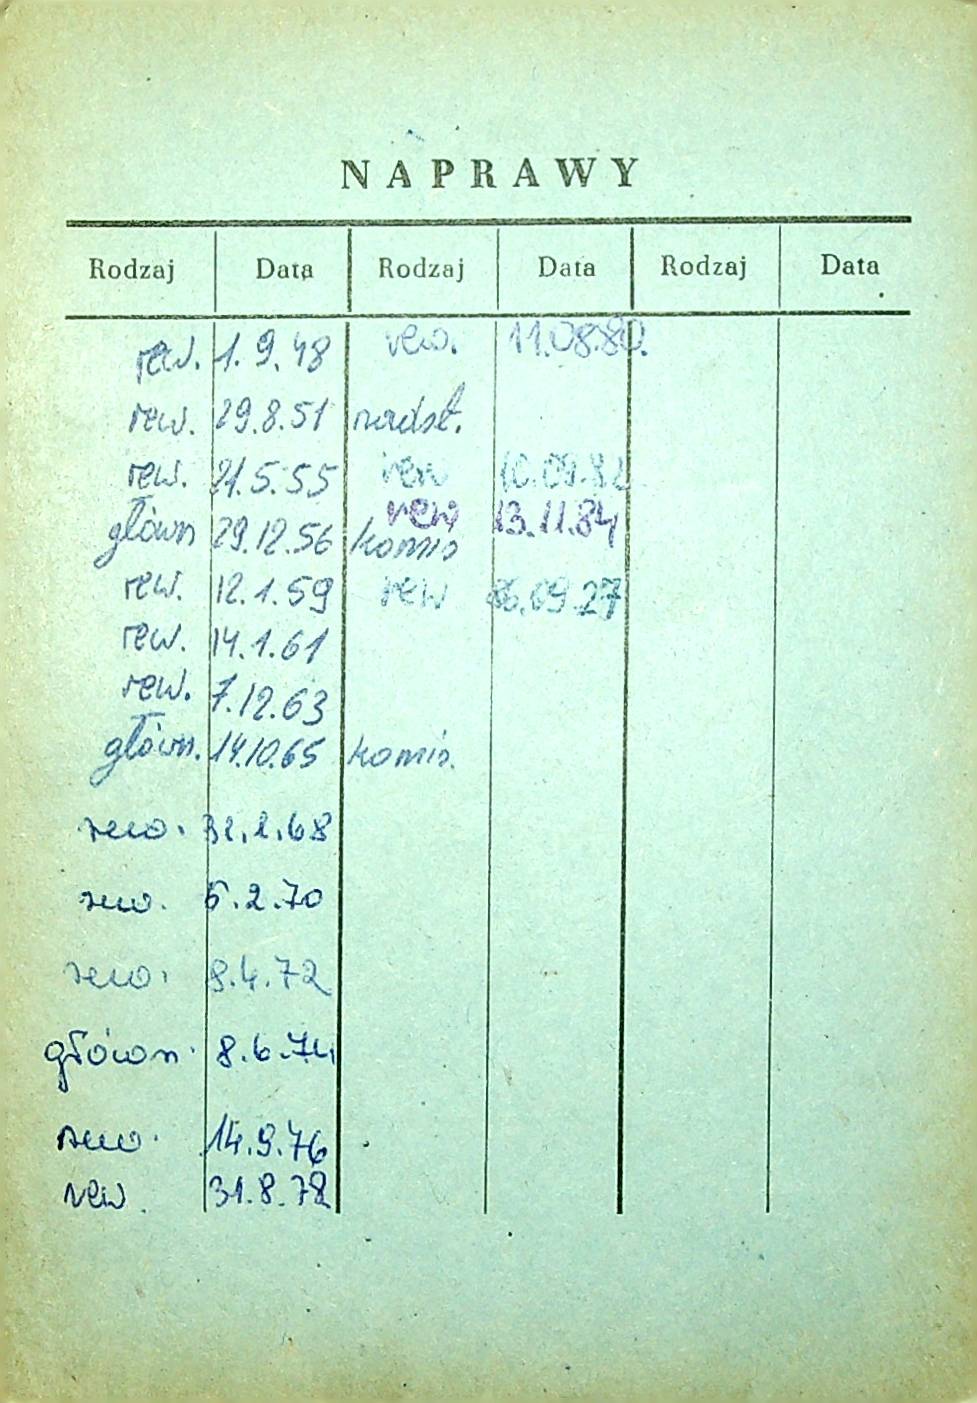 NAPRAWY
Rodzaj Data Rodzaj Data Rodzaj Data
rew. 1.9.48 rew. 11.08.80.
rew. 29.8.51 nadst.
rew. 21.5.55 rew 10.09.82
rew 13.11.84
główn 29.12.56 komis
rew. 12.1.59 rew 86.09.27
rew. 14.1.61
rew. 7.12.63
główn. 14.10.65 komis.
rew. 68
rew. 6.2.70
rew. 8.4.72
główn. 8.6.74
rew. 14.9.76
rew. 31.8.78